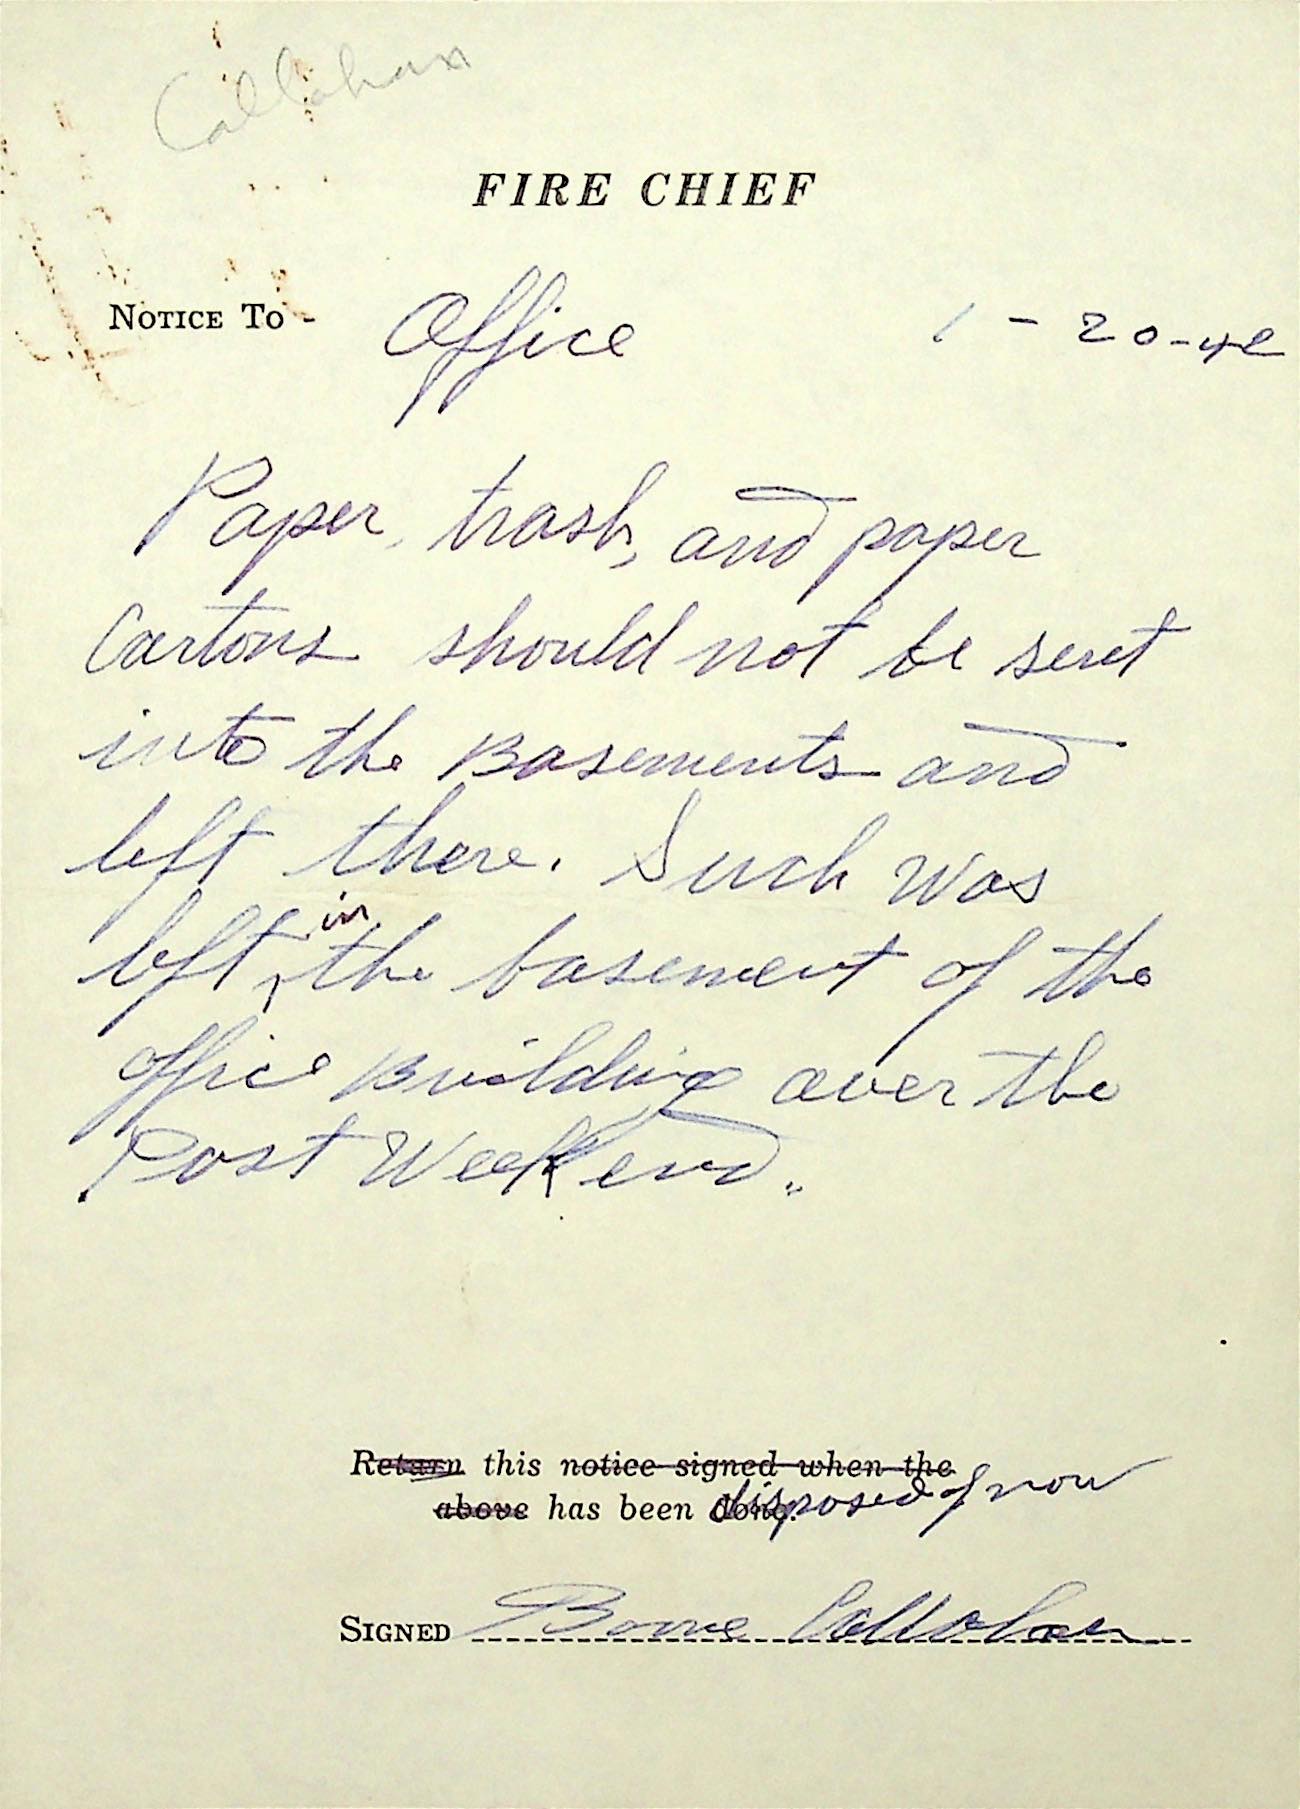 Callahan
FIRE CHIEF
NOTICE TO - Office 1 - 20-42
Paper, trash, and paper
Cartons should not be sent
into the Basements and
left there. Such was
left in the basement of the
office Building over the
Past Week end.
Return this notice signed when the
above has been done. disposed of now
SIGNED Boone Callahan